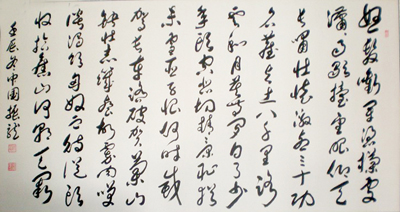 怒髮衝冠憑欄處
瀟瀟雨歇抬望眼仰天
長嘯壯懷激烈三十功
名塵與土八千里路
雲和月莫等閒白了少
年頭空悲切靖康恥猶
未雪臣子恨何時滅
駕長車踏破賀蘭山
缺壯志飢餐胡虜肉笑
談渴飲匈奴血待從頭
收拾舊山河朝天闕
壬辰中國